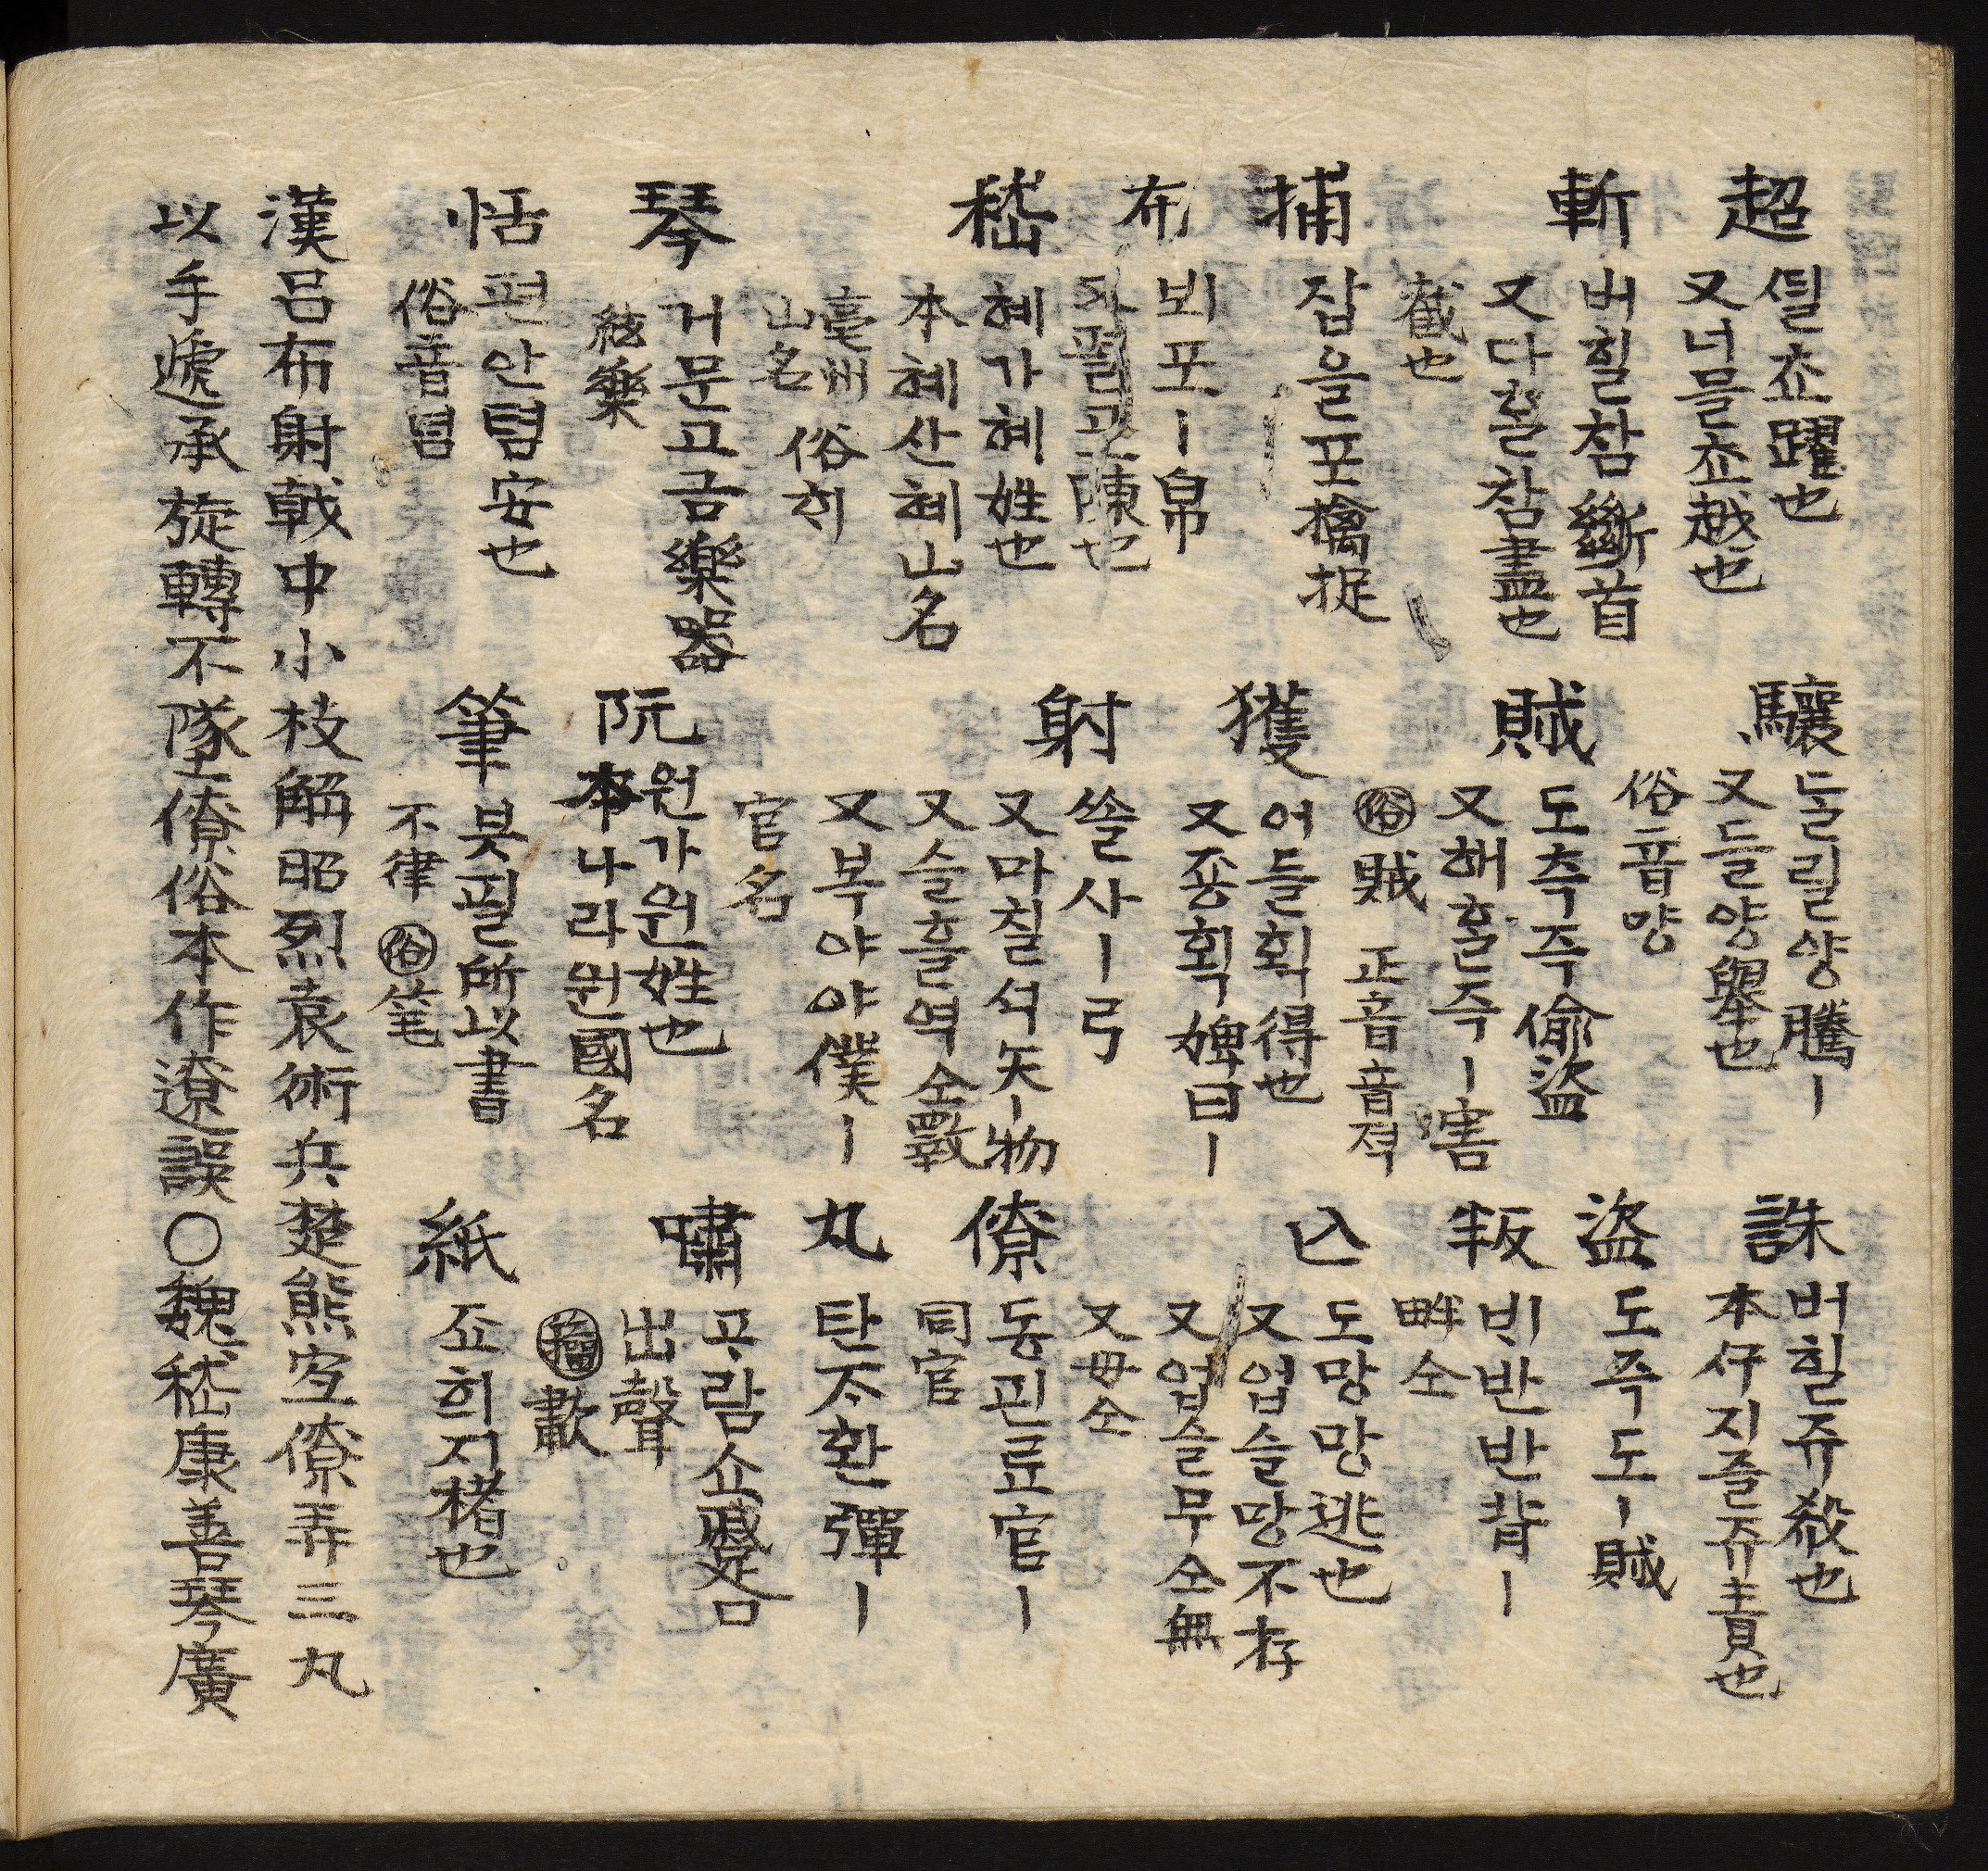 超 ᄯᅱᆯ쵸躍也
又너믈쵸越也
驤 ᄃᆞᆯ릴양騰ㅣ
又들양擧也
俗音양
誅 버힐쥬殺也
本仔지즐쥬責也
斬 버힐참斷首
又다ᄒᆞᆯ참盡也
截也
賊 도즉즉偸盜
又해ᄒᆞᆯ즉ㅣ害
俗賊 正音音젹
盜 도즉도ㅣ賊
捕 잡을포擒捉
獲 어들획得也
又죵획婢曰ㅣ
叛 ᄇᆡ반반背ㅣ
畔仝
亡 도망망逃也
又업슬망不存
又업슬무仝無
又毋仝
布 뵈포ㅣ帛
又펼포陳也
射 쏠사ㅣ弓
又마칠석矢ㅣ物
又슬흘역仝斁
又복야야僕ㅣ
官名
僚 동관료官ㅣ
同官
丸 탄ᄌᆞ환彈ㅣ
嵇 혜가혜姓也
本혜산혜山名
亳州山名 俗히
琴 거문고금樂器
絃樂
阮 원가원姓也
本나라원國名
嘯 ᄑᆞ람쇼蹙唫
出聲
籀歗
恬 편안텸安也
俗音텸
筆 붓필所以書
不律 俗笔
紙 죠희지楮也
漢呂布射戟中小枝解昭烈袁術兵楚熊宜僚弄三丸
以手遞承旋轉不墜僚俗本作遼誤〇魏嵇康善琴廣